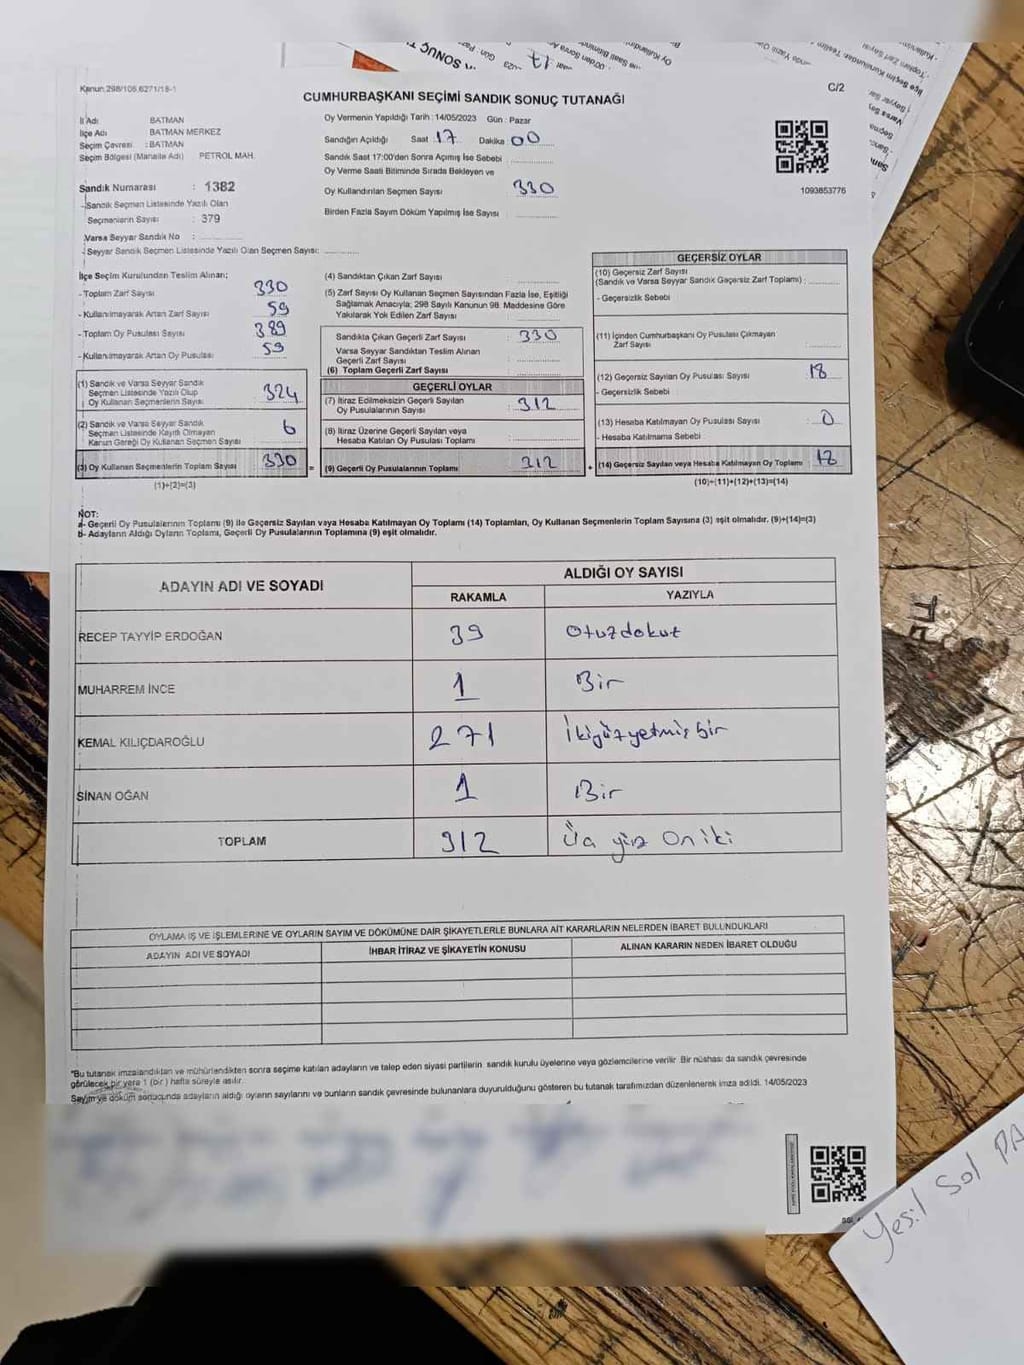 Kanun: 298/105,6271/18-1
C/2
CUMHURBAŞKANI SEÇİMİ SANDIK SONUÇ TUTANAĞI
İl Adı BATMAN
İlçe Adı BATMAN MERKEZ
Seçim Çevresi : BATMAN
Seçim Bölgesi (Mahalle Adı) PETROL MAH.
Sandık Numarası : 1382
- Sandık Seçmen Listesinde Yazılı Olan
Seçmenlerin Sayısı : 379
Varsa Seyyar Sandık No :
- Seyyar Sandık Seçmen Listesinde Yazılı Olan Seçmen Sayısı:
Oy Vermenin Yapıldığı Tarih : 14/05/2023 Gün : Pazar
Sandığın Açıldığı Saat 17 Dakika 00
Sandık Saat 17:00'den Sonra Açımış İse Sebebi
Oy Verme Saati Bitiminde Sırada Bekleyen ve
Oy Kullandırılan Seçmen Sayısı 330
Birden Fazla Sayım Döküm Yapılmış İse Sayısı
1093853776
İlçe Seçim Kurulundan Teslim Alınan;
- Toplam Zarf Sayısı 330
- Kullanılmayarak Artan Zarf Sayısı 59
- Toplam Oy Pusulası Sayısı 389
- Kullanılmayarak Artan Oy Pusulası 59
(1) Sandık ve Varsa Seyyar Sandık
Seçmen Listesinde Yazılı Olup
Oy Kullanan Seçmenlerin Sayısı 324
(2) Sandık ve Varsa Seyyar Sandık
Seçmen Listesinde Kayıtlı Olmayan
Kanun Gereği Oy Kullanan Seçmen Sayısı 6
(3) Oy Kullanan Seçmenlerin Toplam Sayısı 330
(1)+(2)=(3)
(4) Sandıktan Çıkan Zarf Sayısı
(5) Zarf Sayısı Oy Kullanan Seçmen Sayısından Fazla İse, Eşitliği
Sağlamak Amacıyla; 298 Sayılı Kanunun 98. Maddesine Göre
Yakılarak Yok Edilen Zarf Sayısı
Sandıkta Çıkan Geçerli Zarf Sayısı 330
Varsa Seyyar Sandıktan Teslim Alınan
Geçerli Zarf Sayısı
(6) Toplam Geçerli Zarf Sayısı
GEÇERLİ OYLAR
(7) İtiraz Edilmeksizin Geçerli Sayılan
Oy Pusulalarının Sayısı 312
(8) İtiraz Üzerine Geçerli Sayılan veya
Hesaba Katılan Oy Pusulası Toplamı
= (9) Geçerli Oy Pusulalarının Toplamı 312
GEÇERSİZ OYLAR
(10) Geçersiz Zarf Sayısı
(Sandık ve Varsa Seyyar Sandık Geçersiz Zarf Toplamı) :
- Geçersizlik Sebebi
(11) İçinden Cumhurbaşkanı Oy Pusulası Çıkmayan
Zarf Sayısı
(12) Geçersiz Sayılan Oy Pusulası Sayısı 18
- Geçersizlik Sebebi
(13) Hesaba Katılmayan Oy Pusulası Sayısı 0
- Hesaba Katılmama Sebebi
+ (14) Geçersiz Sayılan veya Hesaba Katılmayan Oy Toplamı 18
(10)+(11)+(12)+(13)=(14)
NOT:
a- Geçerli Oy Pusulalarının Toplamı (9) ile Geçersiz Sayılan veya Hesaba Katılmayan Oy Toplamı (14) Toplamları, Oy Kullanan Seçmenlerin Toplam Sayısına (3) eşit olmalıdır. (9)+(14)=(3)
b- Adayların Aldığı Oyların Toplamı, Geçerli Oy Pusulalarının Toplamına (9) eşit olmalıdır.
ADAYIN ADI VE SOYADI
ALDIĞI OY SAYISI
RAKAMLA YAZIYLA
RECEP TAYYİP ERDOĞAN 39 Otuzdokuz
MUHARREM İNCE 1 Bir
KEMAL KILIÇDAROĞLU 271 İkiyüzyetmiş bir
SİNAN OĞAN 1 Bir
TOPLAM 312 Üç yüz On iki
OYLAMA İŞ VE İŞLEMLERİNE VE OYLARIN SAYIM VE DÖKÜMÜNE DAİR ŞİKAYETLERLE BUNLARA AİT KARARLARIN NELERDEN İBARET BULUNDUKLARI
ADAYIN ADI VE SOYADI İHBAR İTİRAZ VE ŞİKAYETİN KONUSU ALINAN KARARIN NEDEN İBARET OLDUĞU
*Bu tutanak imzalandıktan ve mühürlendikten sonra seçime katılan adayların ve talep eden siyasi partilerin sandık kurulu üyelerine veya gözlemcilerine verilir. Bir nüshası da sandık çevresinde
görülecek bir yere 1 (bir) hafta süreyle asılır.
Sayım ve döküm sonucunda adayların aldığı oyların sayılarını ve bunların sandık çevresinde bulunanlara duyurulduğunu gösteren bu tutanak tarafımızdan düzenlenerek imza edildi. 14/05/2023
Yeşil Sol PA